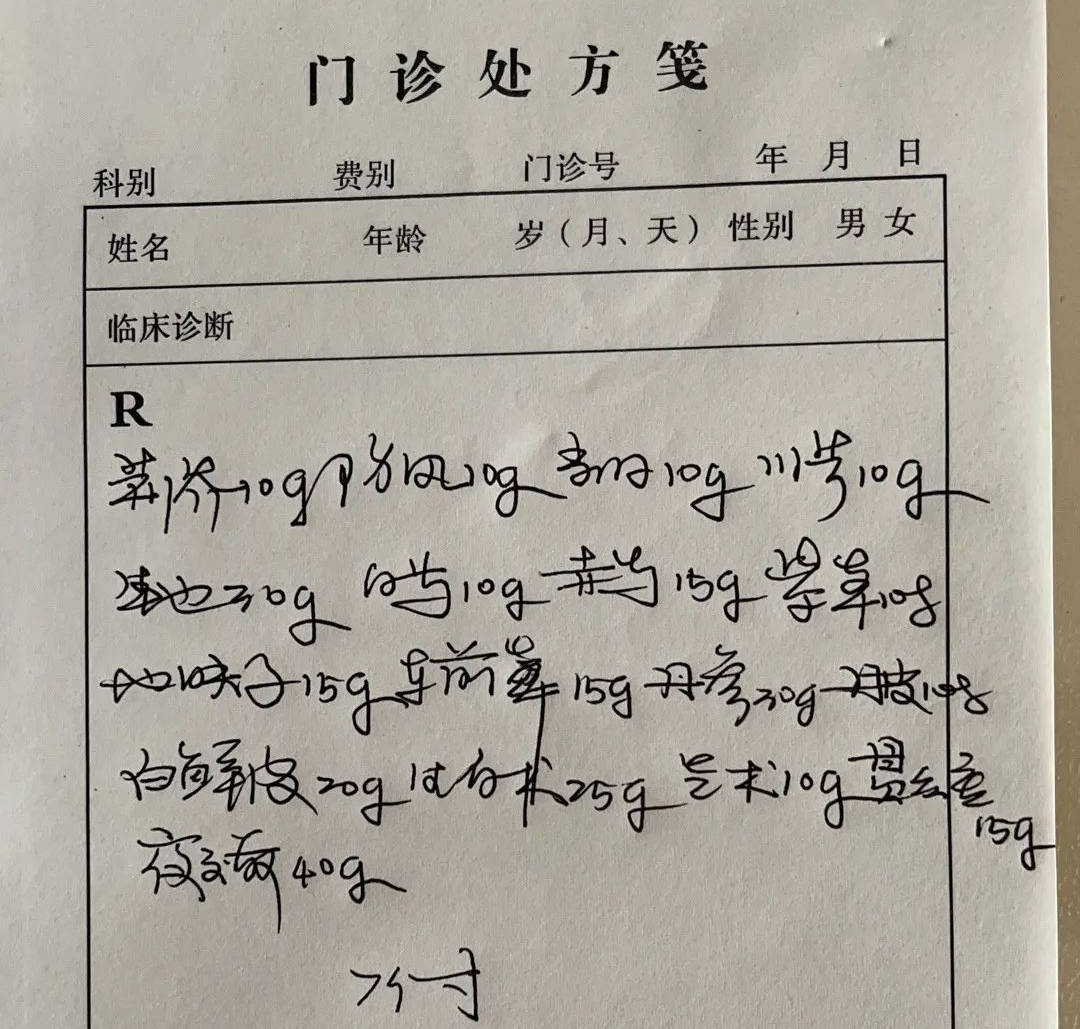 门诊处方笺
科别 费别 门诊号 年 月 日
姓名 年龄 岁（月、天） 性别 男 女
临床诊断
R
荆芥10g 防风10g 10g 川芎10g
生地30g 白芍10g 赤芍15g 紫草10g
地肤子15g 车前草15g 丹参30g 丹皮10g
白鲜皮20g 白术25g 苍术10g 15g
夜交藤40g
7付